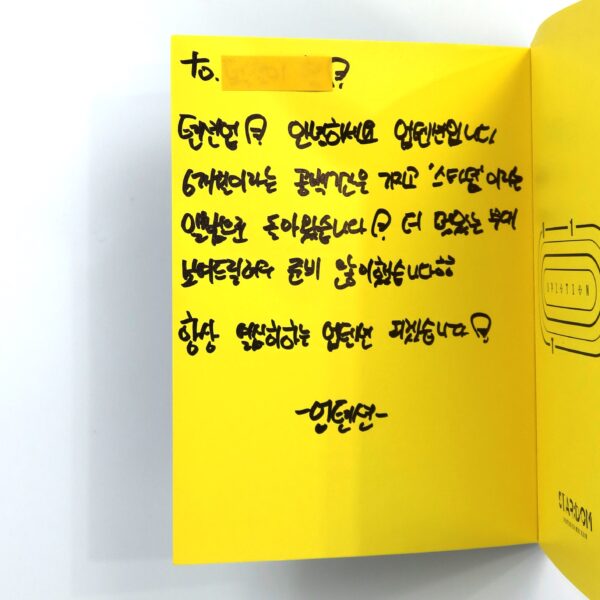 To.
텐션업 안녕하세요 업텐션입니다
6개월이라는 공백기간을 가지고 '스타덤'이라는
앨범으로 돌아왔습니다 더 멋있는 무대
보여드리려고 준비 많이했습니다ㅎㅎ
항상 열심히하는 업텐션 되겠습니다
-업텐션-
STARDOM